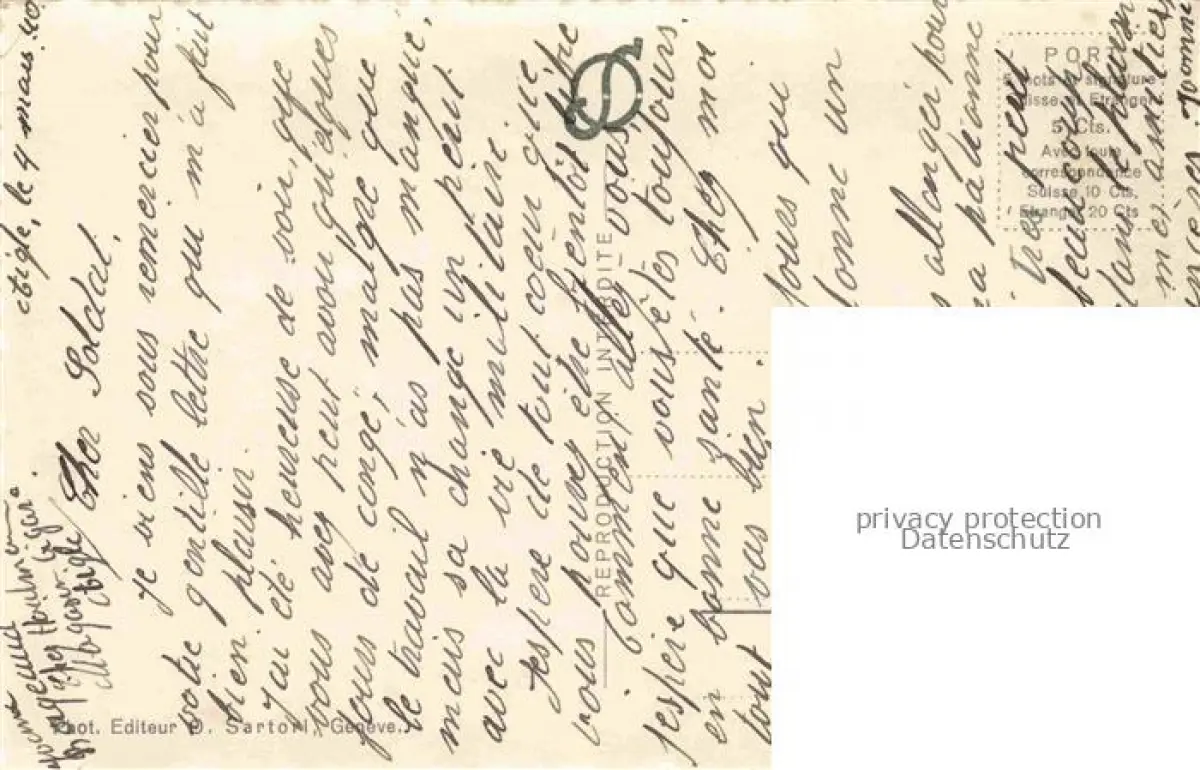 Aigle, le 4 mars. 40.
Cher Soldat,
Je viens vous remercier pour
votre gentille lettre qui m'a fait
bien plaisir.
J'ai été heureuse de voir, que
vous avez peut avoir quelques
jours de congé, malgré que
le travail n'as pas manque,
mais sa change un peut
avec la vie militaire.
J'espère de tout coeur que
vous pouvez être bientôt libre
Comment allez vous,
j'espère que vous êtes toujours
en bonne santé. Chez moi
tout vas bien.
jours que
donne un
allonger pour
ma pa donne
très peut
beaucoup
dans plus
mes amitiés
Yvonne
Magasin
Aigle
PORT
5 mots et signature
Suisse et Etranger
5 Cts.
Avec toute
correspondance
Suisse 10 Cts,
Etranger 20 Cts
REPRODUCTION INTERDITE
Phot. Editeur O. Sartori, Genève.
privacy protection
Datenschutz